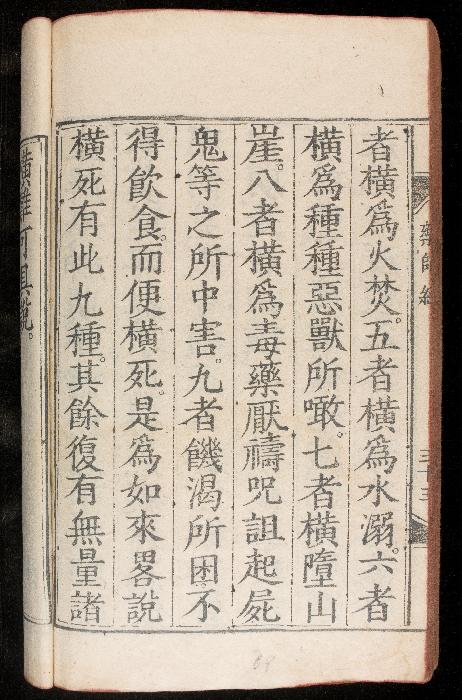 藥師經
三十三
者橫爲火焚。五者橫爲水溺。六者
橫爲種種惡獸所噉。七者橫墮山
崖。八者橫爲毒藥厭禱呪詛起屍
鬼等之所中害。九者饑渴所困。不
得飮食。而便橫死。是爲如來畧說
橫死。有此九種。其餘復有無量諸
橫難可具說。